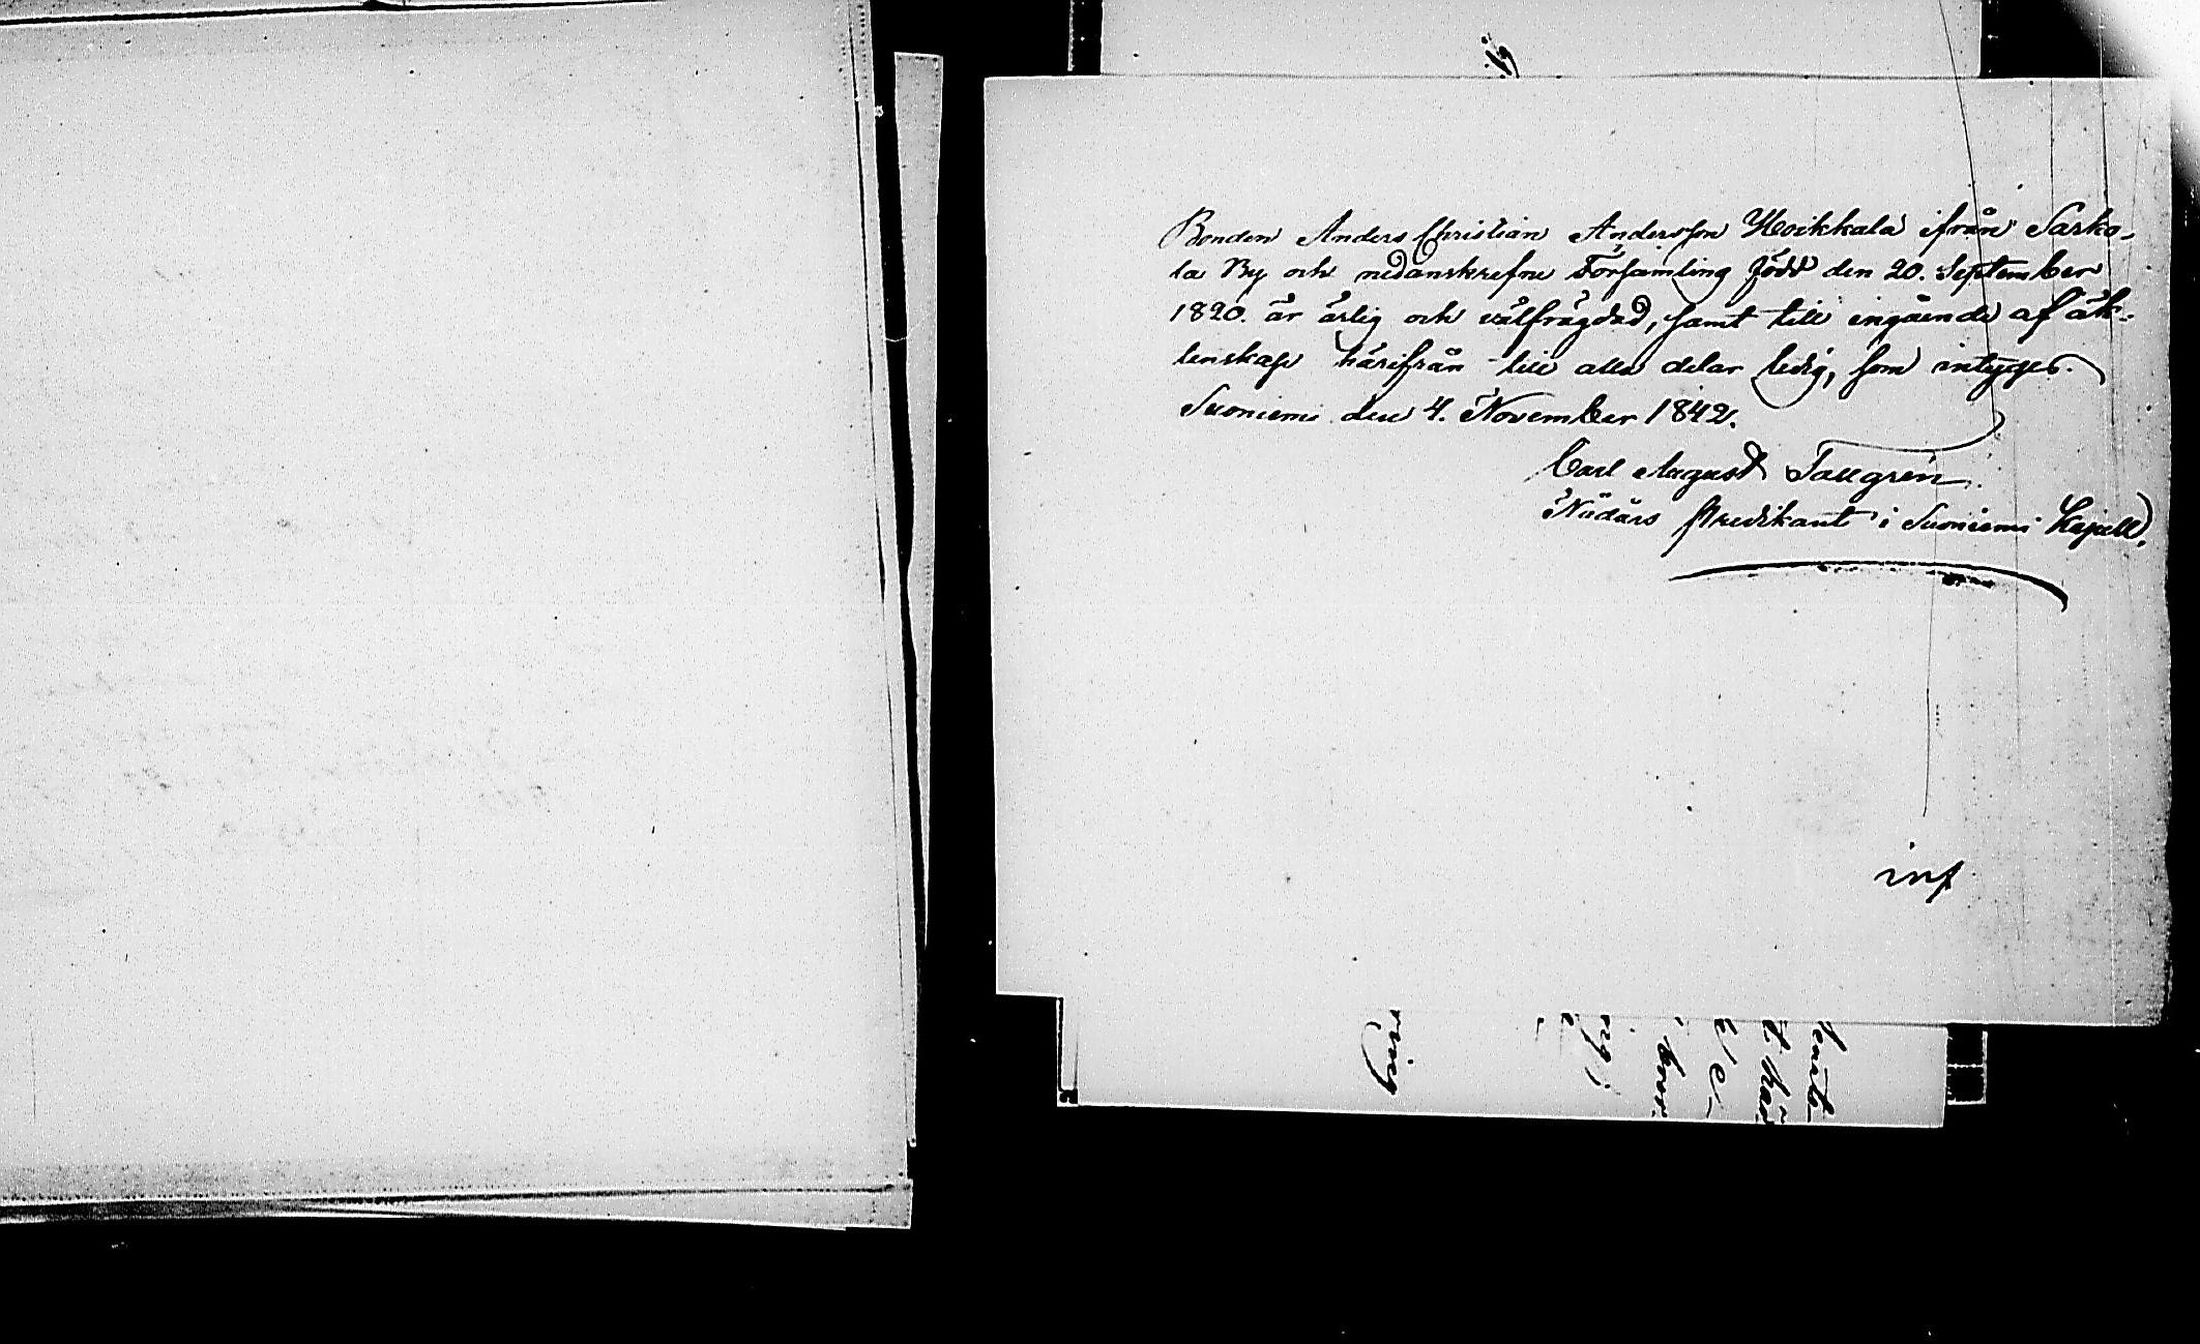 Bonden Anders Christian Andersson Hoikkala ifrån Sarko-
la By och nedanskrefne Församling född den 20. September
1820. är ärlig och välfrägdad, samt till ingående af äk-
tenskap härifrån till alla delar ledig, som intygas.
Suoniemi den 4. November 1842.
Carl August Tallgren
Nådårs Predikant i Suoniemi Kapell.
inf